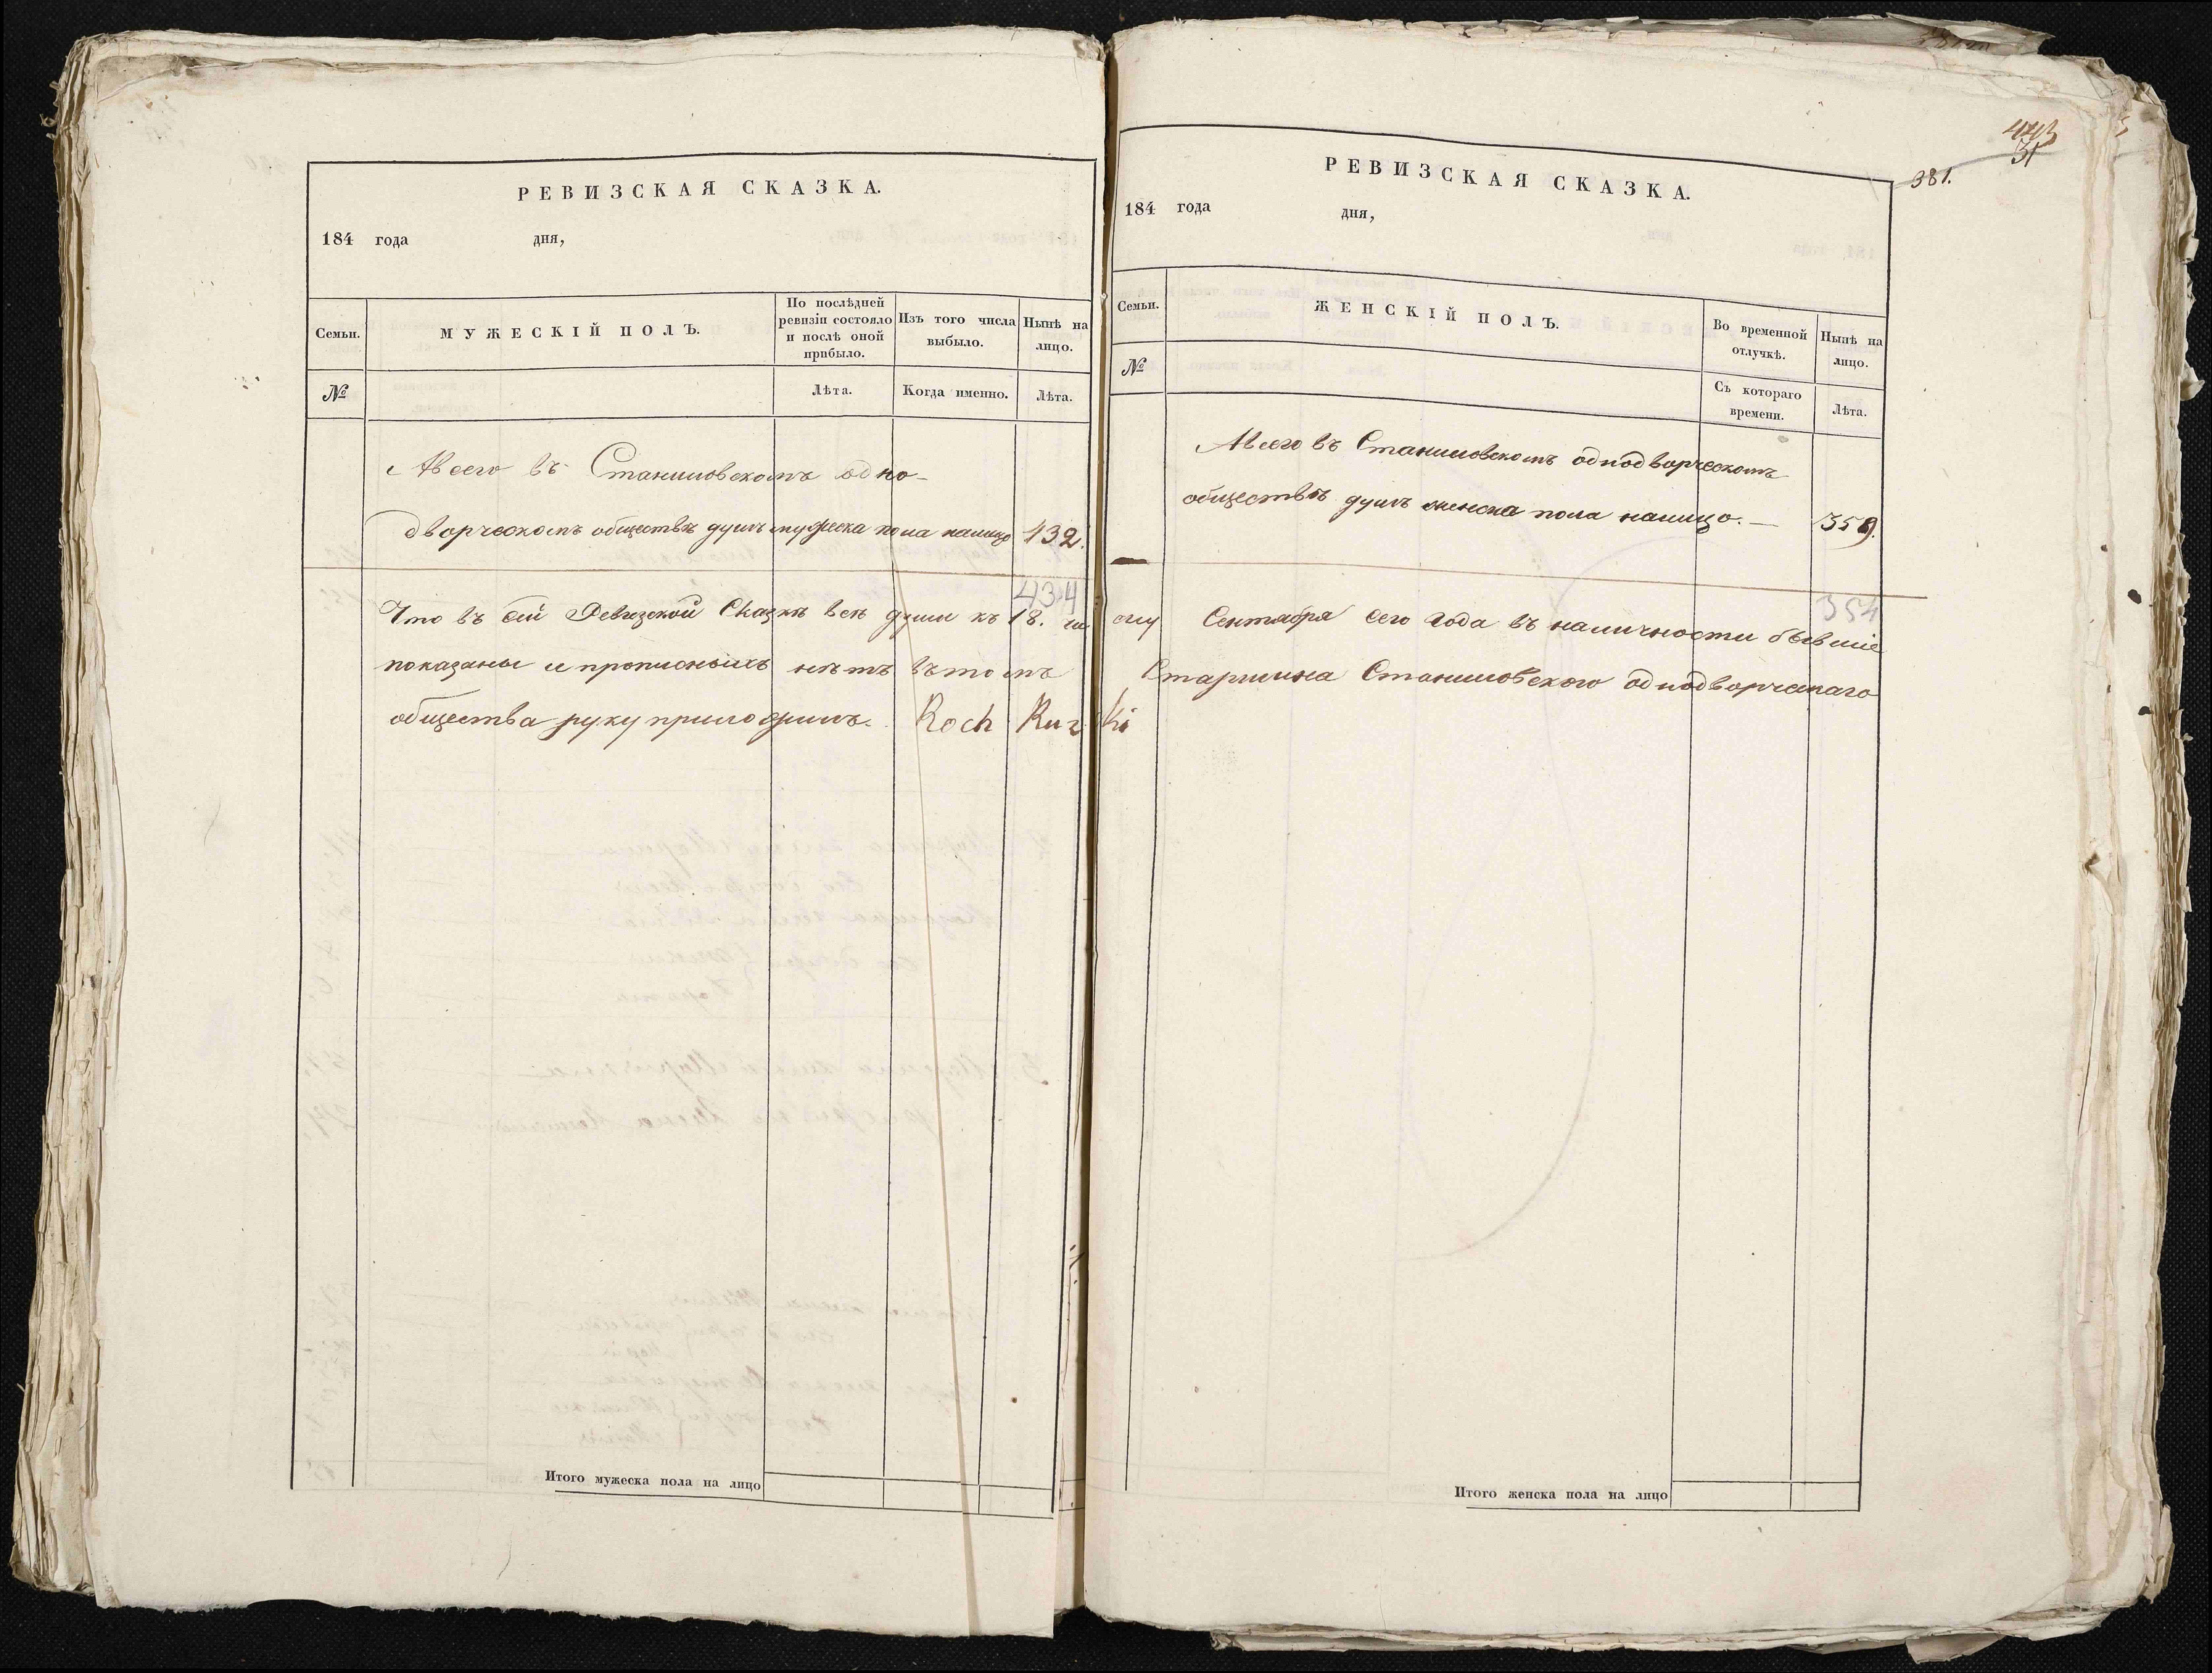 РЕВИЗСКАЯ СКАЗКА.
184 года дня,
Семьи.
МУЖЕСКІЙ ПОЛЪ.
По послѣдней
ревизіи состояло
и послѣ оной
прибыло.
Изъ того числа
выбыло.
Нынѣ на
лицо.
№
Лѣта.
Когда именно.
Лѣта.
А всего въ Станишовскомъ одно-
дворческомъ обществѣ душъ мужеска пола налицо 432.
434
Что въ сей Ревизской Сказкѣ всѣ души къ 18.
показаны и прописныхъ нѣтъ въ томъ
общества руку приложилъ. Roch
Итого мужеска пола на лицо
443
31
381.
РЕВИЗСКАЯ СКАЗКА.
184 года дня,
Семьи.
ЖЕНСКІЙ ПОЛЪ.
Во временной
отлучкѣ.
Нынѣ на
лицо.
№
Съ котораго
времени.
Лѣта.
А всего въ Станишовскомъ однодворческомъ
обществѣ душъ женска пола налицо. —
354
Сентября сего года въ наличности бывшіе
Старшина Станишовского однодворческаго
Итого женска пола на лицо